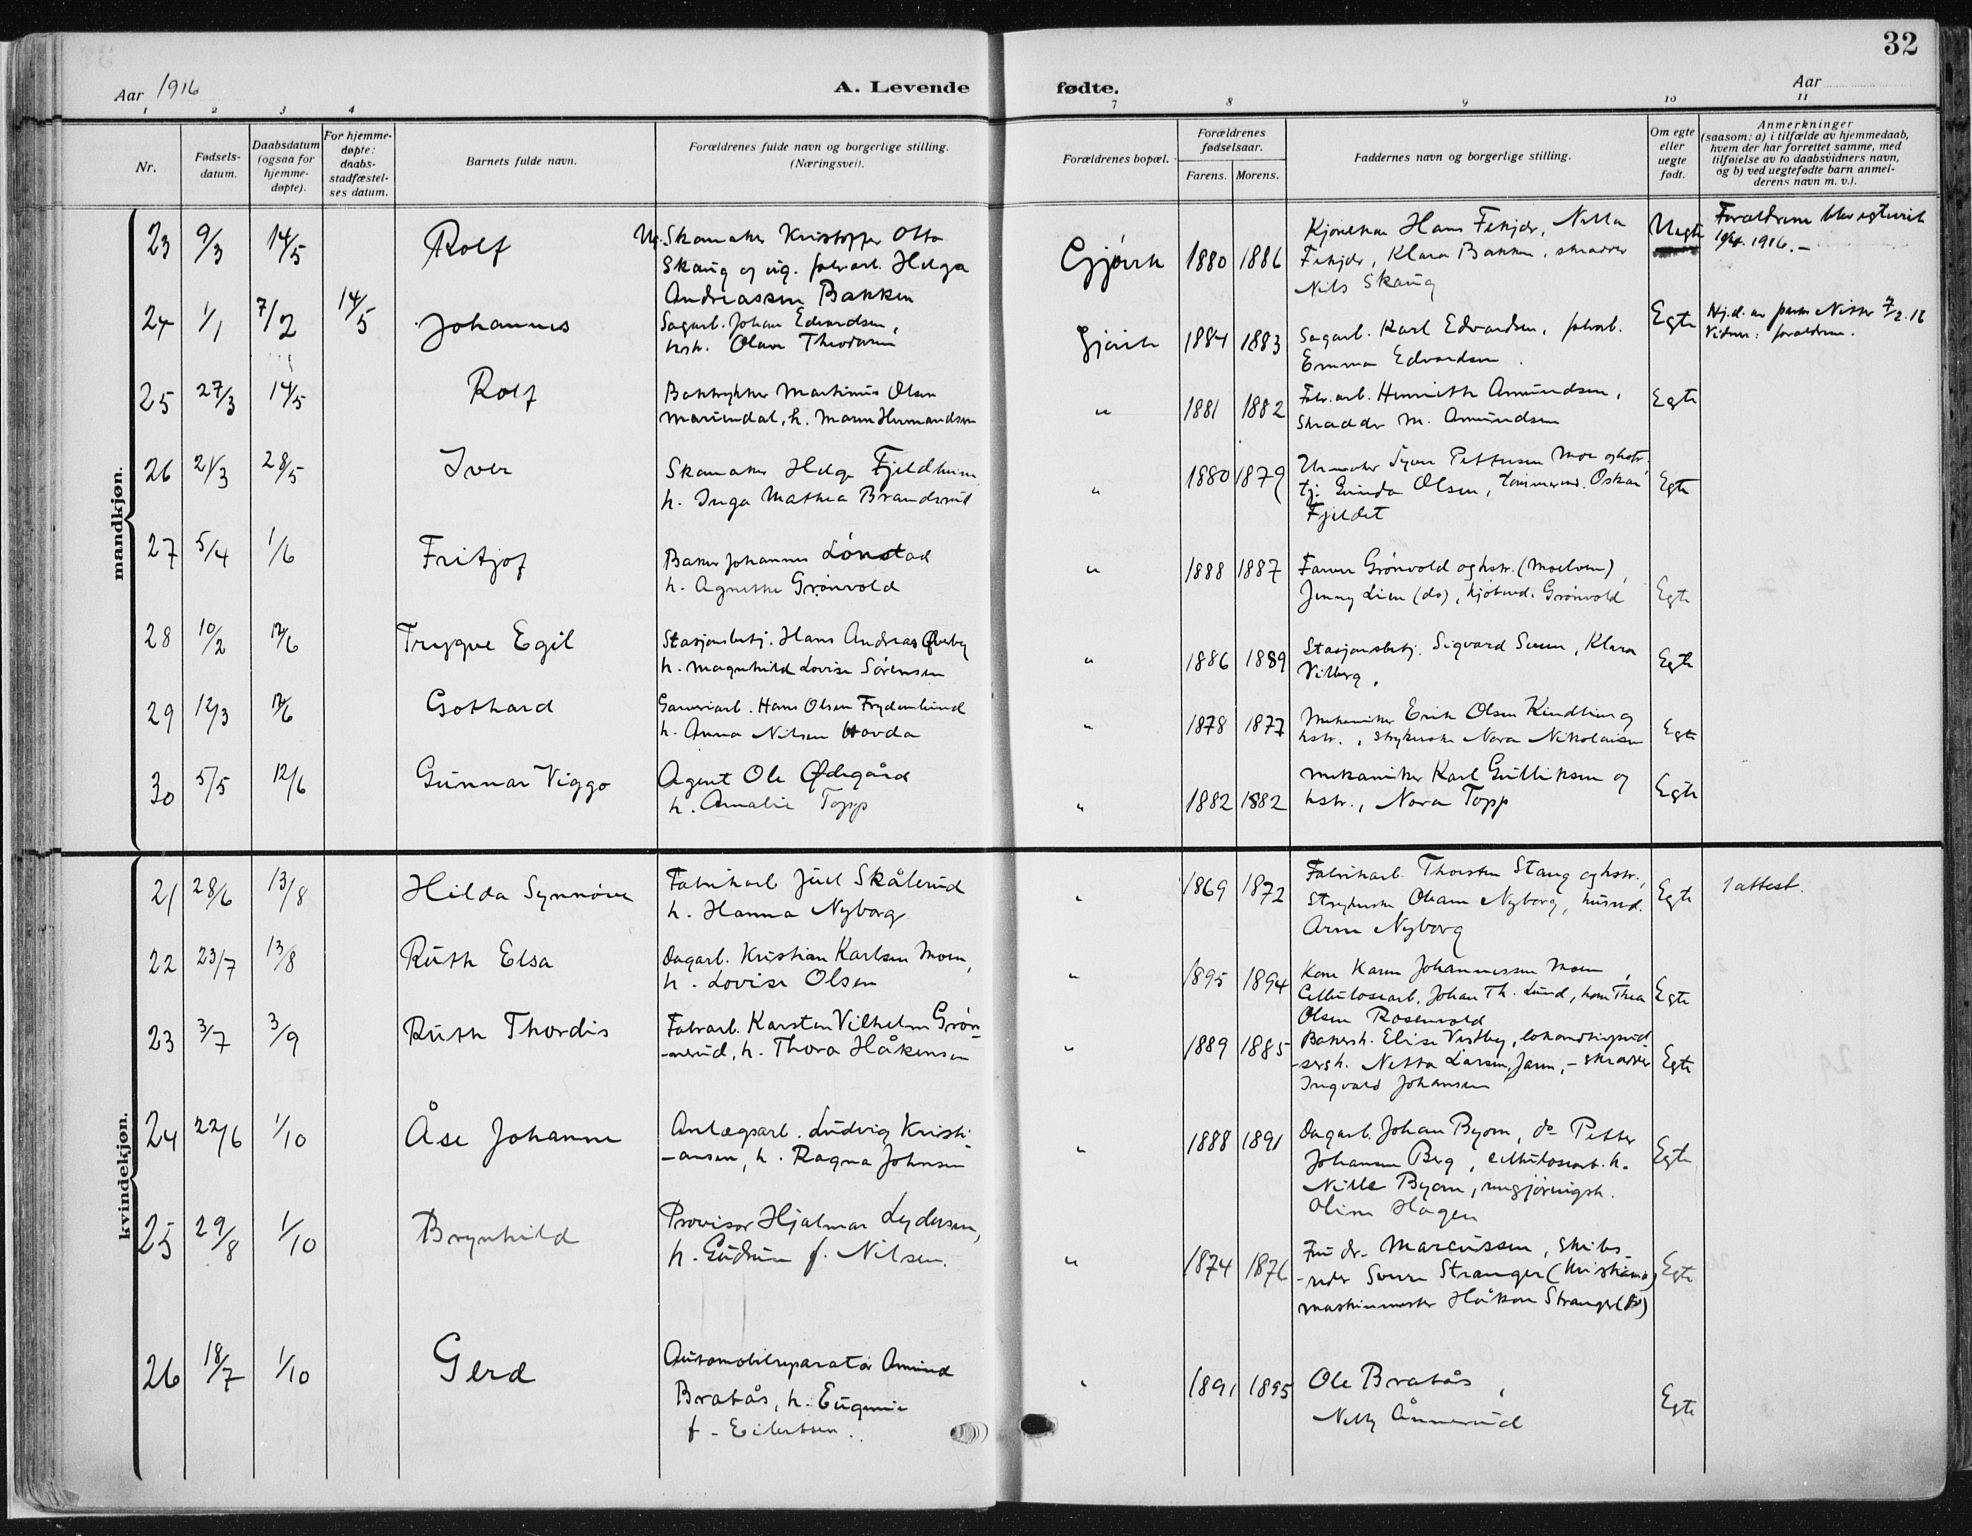 32
Aar 1916
A. Levende fødte.
Aar
1 2 3 4 7 8 9 10 11
Nr.
Fødsels-
datum.
Daabsdatum
(ogsaa for
hjemme-
døpte).
For hjemme-
døpte:
daabs-
stadfæstel-
ses datum.
Barnets fulde navn.
Forældrenes fulde navn og borgerlige stilling.
(Næringsvei).
Forældrenes bopæl.
Forældrenes
fødselsaar.
Farens. Morens.
Faddernes navn og borgerlige stilling.
Om egte
eller
uegte
født.
Anmerkninger
(saasom: a) i tilfælde av hjemmedaab,
hvem der har forrettet samme, med
tilføielse av to daabsvidners navn,
og b) ved uegtefødte barn anmel-
derens navn m. v.).
mandkjøn.
23 9/3 14/5 Rolf
Ug. Skomaker Kristoffer Otto
Skaug og ug. fabrarb. Helga
Andreassen Bakken
Gjøvik 1880 1886
Hans Fehjær, Netta
Fehjær, Klara Bakken, skrædder
Nils Skaug
Uegte
Forældrene blev egteviet
1916. -
24 1/1 7/2 14/5 Johannes
Sagarb. Johan Edvardsen,
hstr. Olava Theodorsen
Gjøvik 1884 1883
Sagarb. Karl Edvardsen, fabrarb.
Emma Edvardsen
Egte
Hj.d. av Nissen 7/2.16
Vidner: forældrene.
25 27/3 14/5 Rolf
Boktrykker Martinius Olsen
Mariendal, h. Maren Hermandsen
" 1881 1882
Fabr.arb. Henriette Amundsen,
Skrædder M. Amundsen
Egte
26 21/3 28/5 Iver
Skomaker Helge Fjeldheim
h. Inga Mathea Brandsrud
" 1880 1879
Urmaker Syver Pettersen Moe og hstr.
tj. Gunda Olsen, tømmermd. Oskar
Fjeldet
Egte
27 5/4 1/6 Fritjof
Baker Johannes Lønstad
h. Agnethe Grønvold
" 1888 1887
Farver Grønvold og hstr. (Moelven),
Jenny Lien (do), kjøbmd. Grønvold
Egte
28 10/2 12/6 Trygve Egil
Stasjonsbetj. Hans Andreas Øverby
h. Magnhild Lovise Sørensen
" 1886 1889
Stasjonsbetj. Sigvard Sveen, Klara
Vilberg.
Egte
29 12/3 12/6 Gothard
Garveriarb. Hans Olsen Frydenlund
h. Anna Nilsen Hovda
" 1878 1877
Mekaniker Erik Olsen Kindlien og
hstr., Strykerske Nora Nikolaisen
Egte
30 5/5 12/6 Gunnar Viggo
Agent Ole Ødegård
h. Amalie Topp
" 1882 1882
Mekaniker Karl Gulliksen og
hstr., Nora Topp
Egte
kvindekjøn.
21 28/6 13/8 Hilda Synnøve
Fabrikarb. Juel Skålerud
h. Hanna Nyborg
" 1869 1872
Fabrikarb. Thorsten Stang og hstr.,
Strykerske Nyborg, husmd.
Arne Nyborg
Egte
1 attest.
22 23/7 13/8 Ruth Elsa
Dagarb. Kristian Karlsen Moen,
h. Lovise Olsen
" 1895 1894
Kone Karen Johannessen Moen,
Cellulosearb. Johan Th. Lund, kone Thea
Olsen Rosenvold
Egte
23 3/7 3/9 Ruth Thordis
Fabrarb. Karsten Vilhelm Grøn-
-nerud, h. Thora Håkensen
" 1889 1885
Bakersh. Elise Vestby,
Netta Larsen, - skrædder
Ingvald Johansen
Egte
24 22/6 1/10 Åse Johanne
Anlægsarb. Ludvig Kristi-
-ansen, h. Ragna Johnsen
" 1888 1891
Dagarb. Johan Byom, do Petter
Johansen Berg, cellulosearb. h.
Nille Byom, rengjøringsh.
Oline Hagen
Egte
25 29/8 1/10 Brynhild
Provisor Hjalmar Lydersen,
h. Gudrun f. Nilsen.
" 1874 1876
Fru dr. Marcussen, skibs-
-reder Sverre Stranger (Kristiania)
maskinmester Håkon Stranger (do)
Egte
26 18/7 1/10 Gerd
Automobilreparatør Amund
Bratås, h. Eugenie
f. Eilertsen.
" 1891 1895
Ole Bratås,
Nelly Ånnerud
Egte